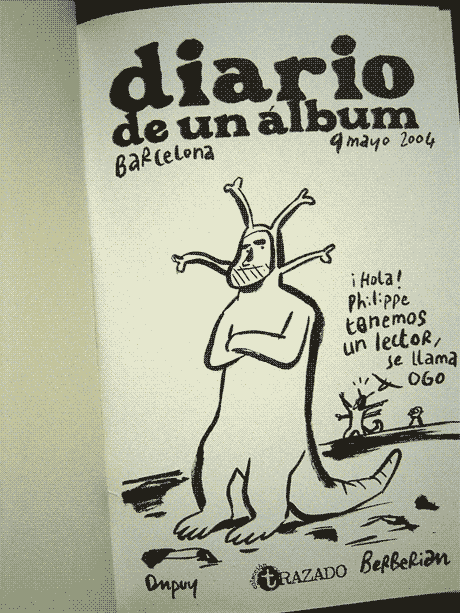 diario
de un álbum
Barcelona
9 mayo 2004
¡Hola!
Philippe
tenemos
un lector,
se llama
OGO
Dupuy
TRAZADO
Berberian